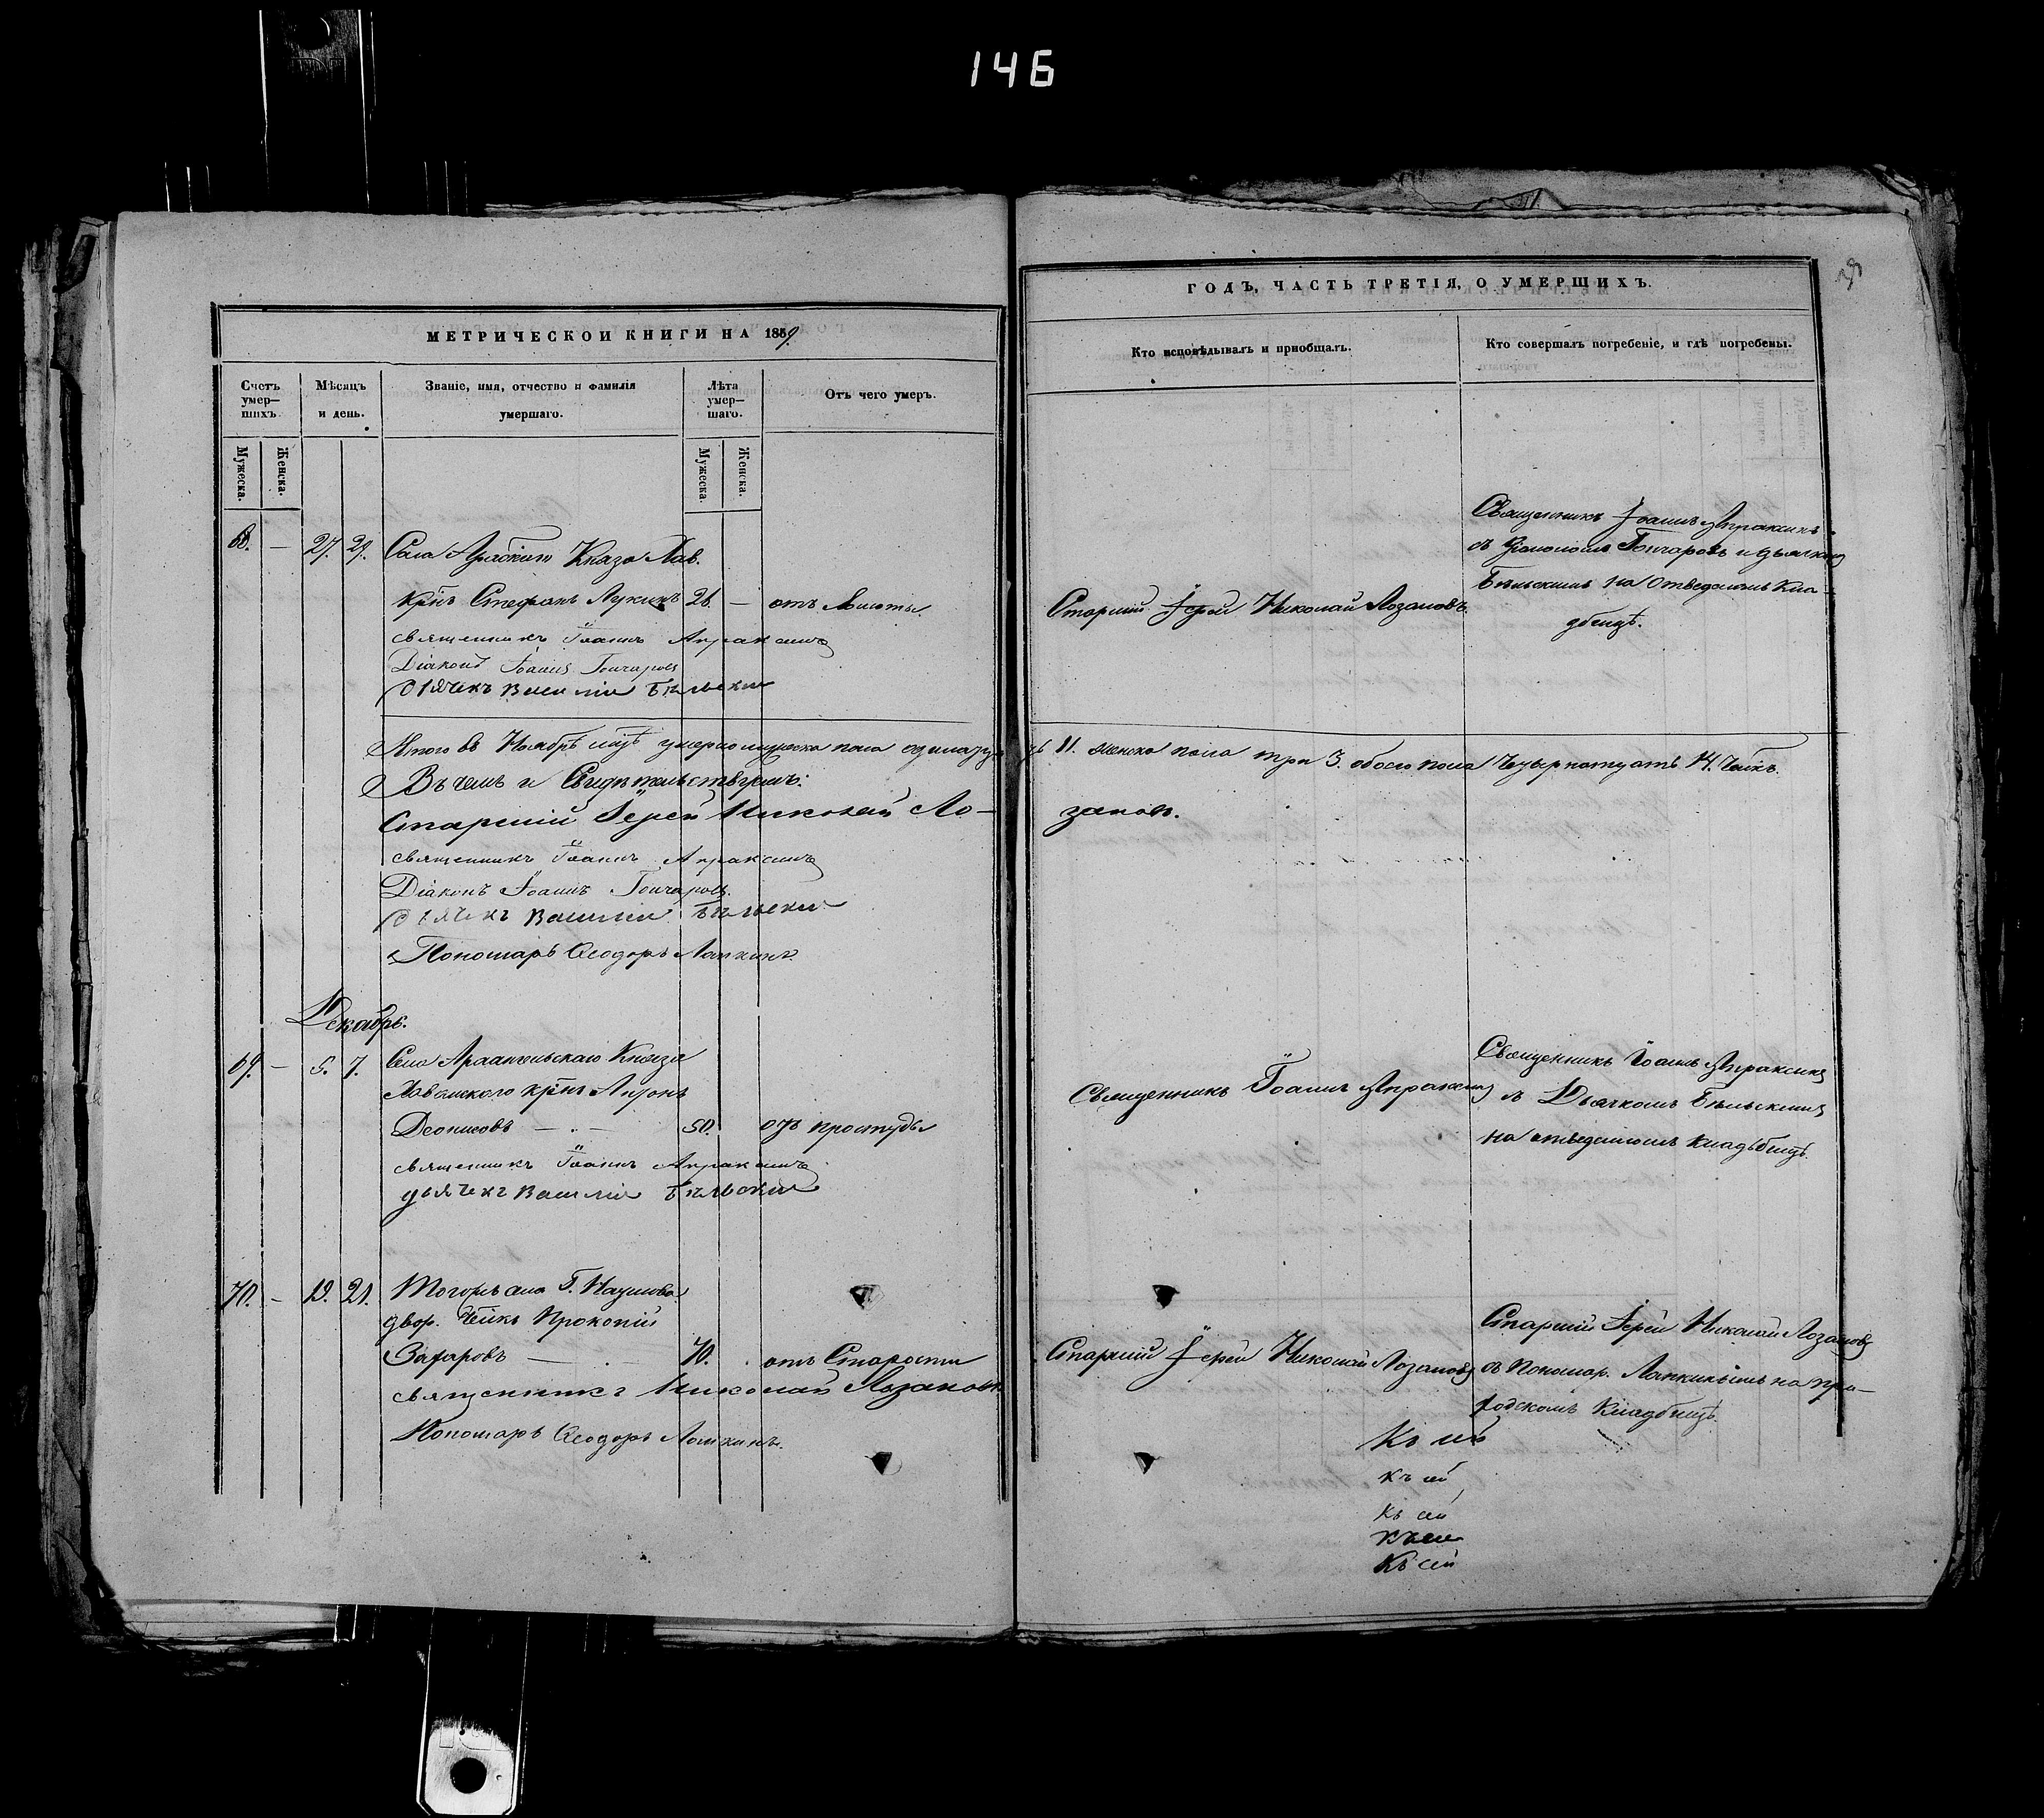 146
МЕТРИЧЕСКОЙ КНИГИ НА 1859
Счетъ умер—шихъ.
Мѣсяцъ и день.
Званіе, имя, отчество и фамилія умершаго.
Лѣта умер—шаго.
Отъ чего умеръ.
Мужеска.
Женска.
Мужеска.
Женска.
68. — 27. 29. Села
Князя Хав.
крⷭ҇нъ Стефанъ Лукинъ 26. — отъ
священникъ Іоаннъ Апраксинъ
Діаконъ Іоаннъ Гончаровъ
Дьячекъ Василій Бѣльскій
Итого въ Ноябрѣ умерло мужеска пола одинадца
Въ чемъ и Свидѣтельствуемъ:
Старшій Іерей Николай Ло—
священникъ Іоаннъ Апраксинъ
Діаконъ Іоаннъ Гончаровъ.
Дьячекъ Василій Бѣльскій
Пономарь Ѳеодоръ Лапкинъ.
Декабрь.
69. — 5. 7. Села Архангельскаго Князя
Хованскаго
Деонисовъ — 50. отъ простуды
священникъ Іоаннъ Апраксинъ
дьячекъ Василій Бѣльскій
70. — 19. 21. Тогожъ села Г. Наумова
двор. чел҃къ Прокопій
Захаровъ — 70. отъ Старости
священникъ Николай Лозановъ
Пономарь Ѳеодоръ Лапкинъ.
ГОДЪ, ЧАСТЬ ТРЕТІЯ, О УМЕРШИХЪ.
Кто исповѣдывалъ и пріобщалъ.
Кто совершалъ погребеніе, и гдѣ погребены.
Старшій Іерей Николай Лозановъ.
Священникъ Іоаннъ Апраксинъ
съ Діакономъ Гончаровъ и дьячкомъ
Бѣльскимъ на отведенномъ Кла—
дбищѣ.
ть 11. женска пола три 3. обоего пола Четырнатцать 14. Челкъ.
зановъ.
Священникъ Іоаннъ Апраксинъ
Священникъ Іоаннъ Апраксинъ
съ Дьячкомъ Бѣльскимъ
на отведенномъ кладьбищѣ.
Старшій Іерей Николай Лозановъ
Старшій Іерей Николай Лозановъ
съ Пономар. Лапкинымъ на при—
ходскомъ Кладбищѣ.
Къ сей
къ сей
къ сей
къ сей
Къ сей